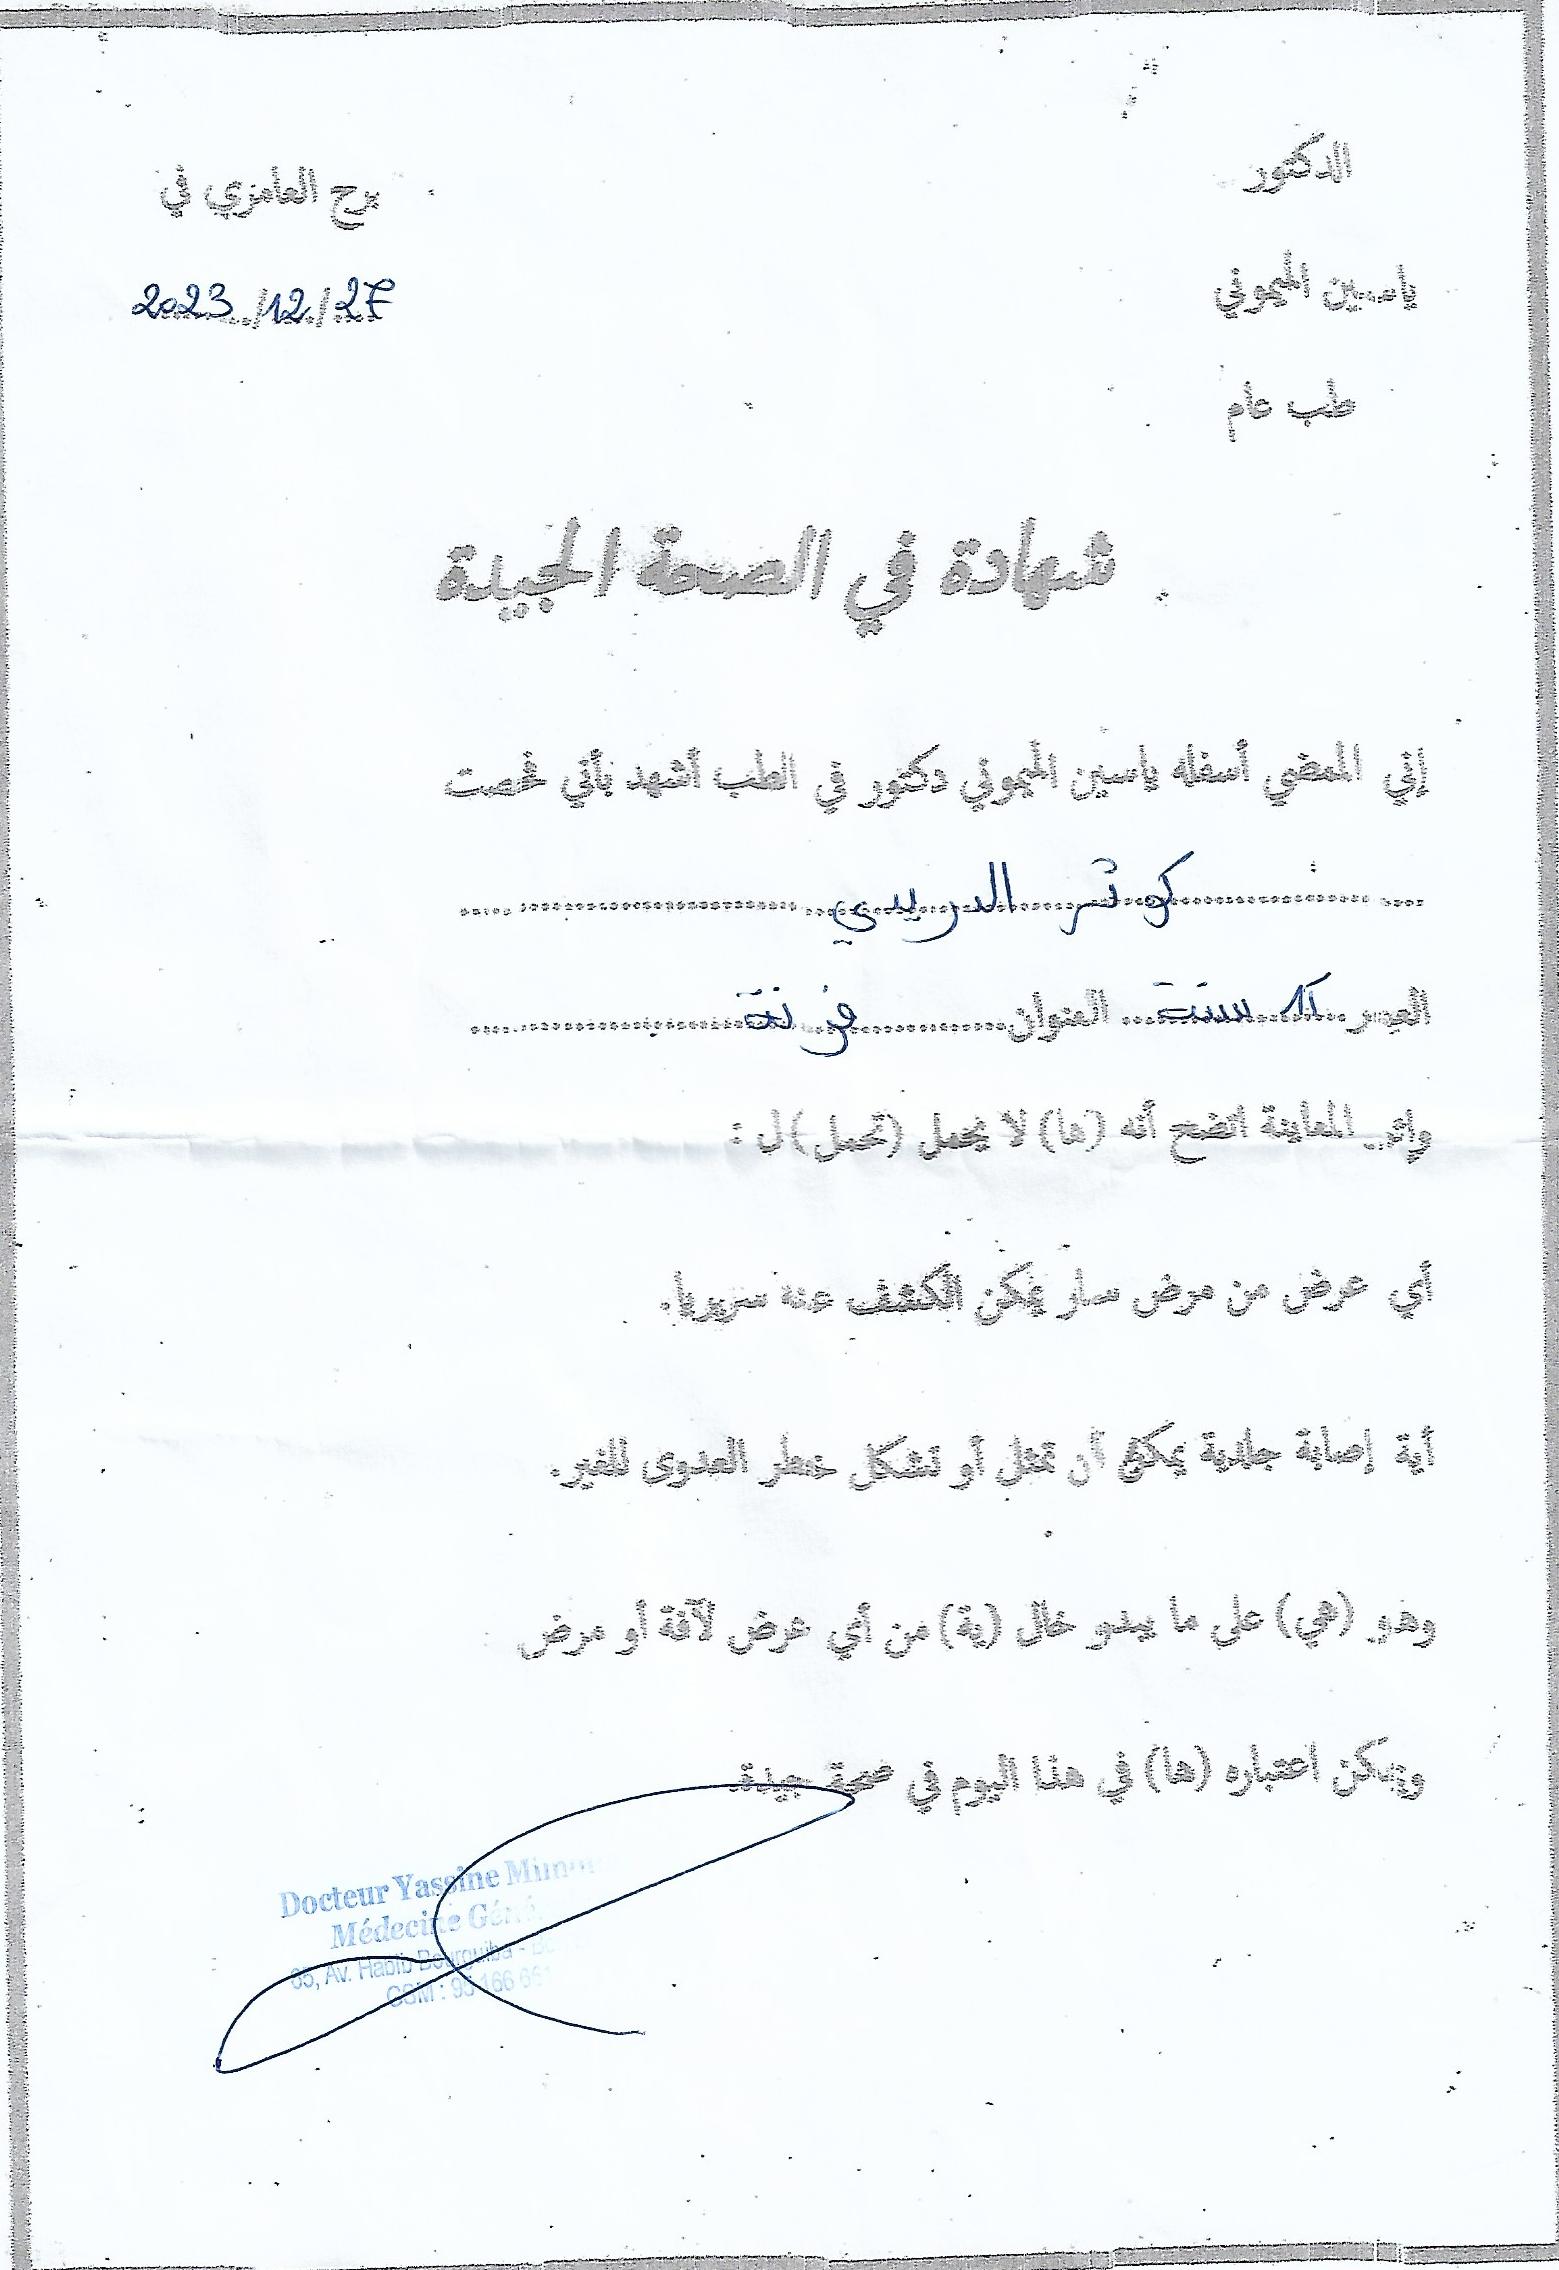 الدكتور
برج العامري في
ياسين الميموني
2023/12/27
طب عام
شهادة في الصحة الجيدة
إني الممضي أسفله ياسين الميموني دكتور في الطب أشهد بأني فحصت
كوثر الدريدي
العمر سنة العنوان فرنة
وإثر المعاينة اتضح أنه (ها) لا يحمل (تحمل) ل :
أي عرض من مرض سار يمكن الكشف عنه سريريا.
أية إصابة جلدية يمكن أن تمثل أو تشكل خطر العدوى للغير.
وهو (هي) على ما يبدو خال (ية) من أي عرض لآفة أو مرض
ويمكن اعتباره (ها) في هذا اليوم في صحة جيدة.
Docteur Yassine
Médecine
65, Av. Habib Bourguiba -
GSM : 95 166 661